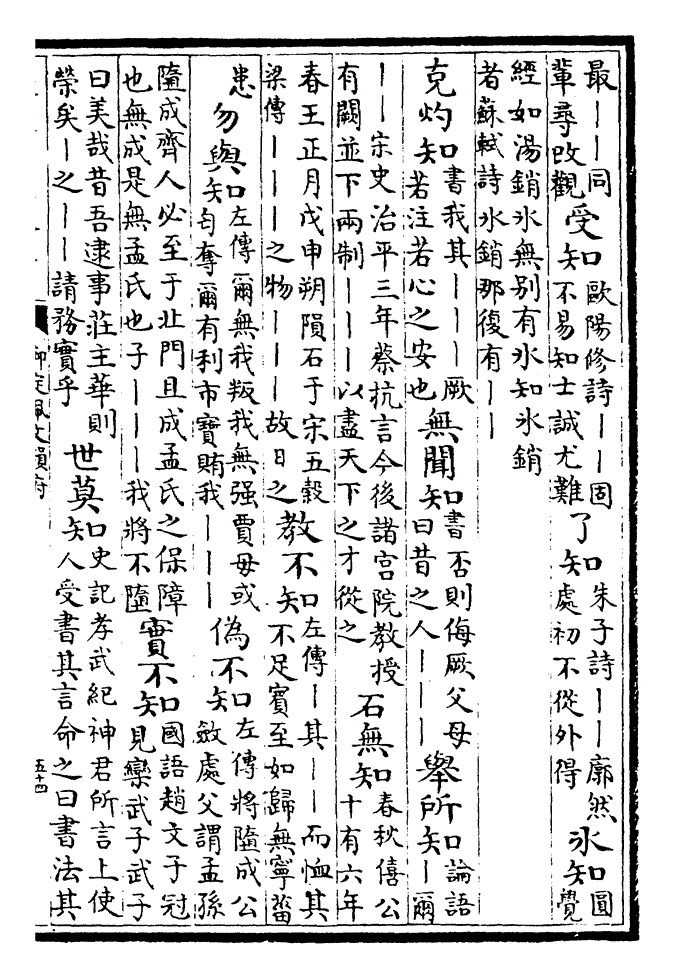 最丨丨同
輩尋改觀
受知
歐陽修詩丨丨固
不易知士誠尤難
了知
朱子詩丨丨廓然
處初不從外得
冰知
圓
覺
經如湯銷冰無别有冰知冰銷
者蘇軾詩冰銷那復有丨丨
克灼知
書我其丨丨丨厥
若注若心之安也
無聞知
書否則侮厥父母
曰昔之人丨丨丨
舉所知
論語
丨爾
丨丨宋史治平三年蔡抗言今後諸宮院教授
有闕並下兩制丨丨丨以盡天下之才從之
石無知
春秋僖公
十有六年
春王正月戊申朔隕石于宋五穀
梁傳丨丨丨之物丨丨丨故日之
教不知
左傳丨其丨丨而恤其
不足賓至如歸無寧菑
患
勿與知
左傳爾無我叛我無强賈毋或
匄奪爾有利市寶賄我丨丨丨
偽不知
左傳將墮成公
斂處父謂孟孫
墮成齊人必至于北門且成孟氏之保障
也無成是無孟氏也子丨丨丨我將不墮
實不知
國語趙文子冠
見欒武子武子
曰美哉昔吾逮事莊主華則
榮矣丨之丨丨請務實乎
世莫知
史記孝武紀神君所言上使
人受書其言命之曰書法其
御定佩文韻府
五十四